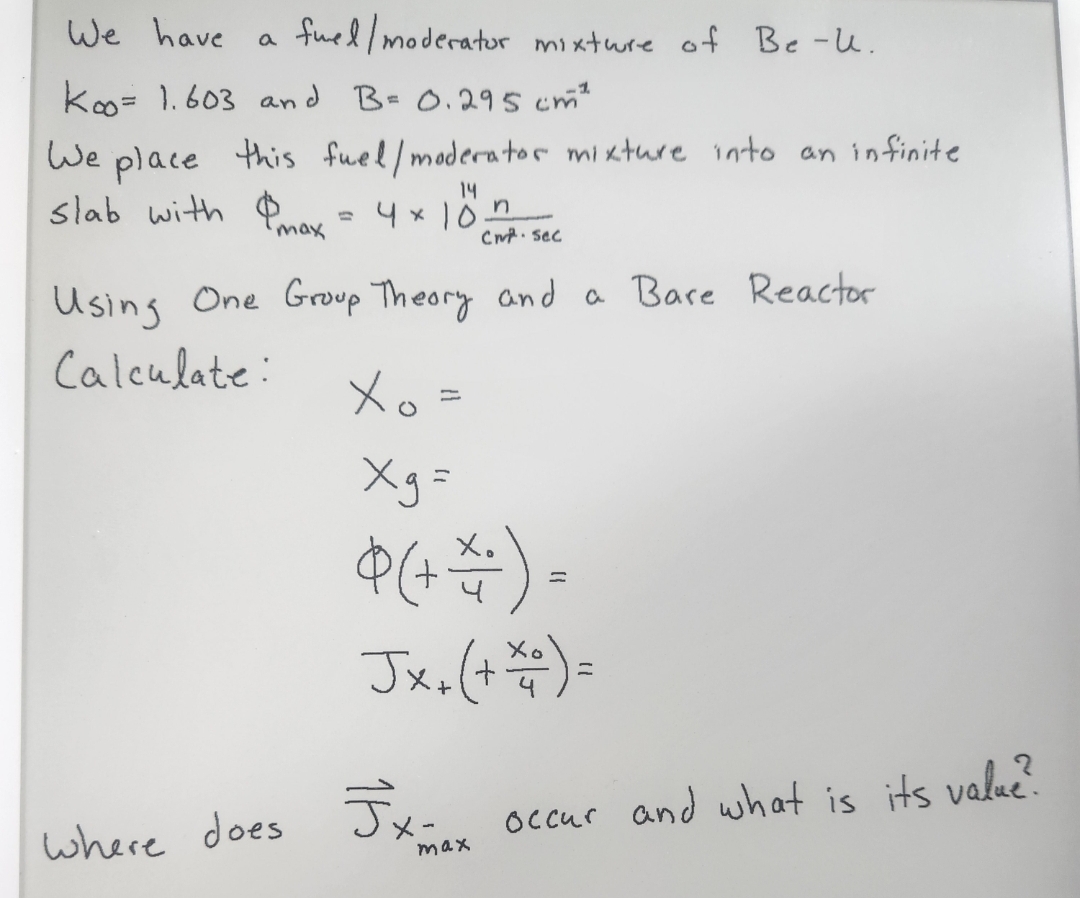 We have a fuel/moderator mixture of Be-U.
K∞ = 1.603 and B = 0.295 cm⁻¹
We place this fuel/moderator mixture into an infinite
slab with Φmax = 4 × 10¹⁴ n/cm²·sec
Using One Group Theory and a Bare Reactor
Calculate:
X₀ =
Xg =
Φ(+X₀/4) =
Jx₊(+X₀/4) =
Where does J⃗x₋max occur and what is its value?